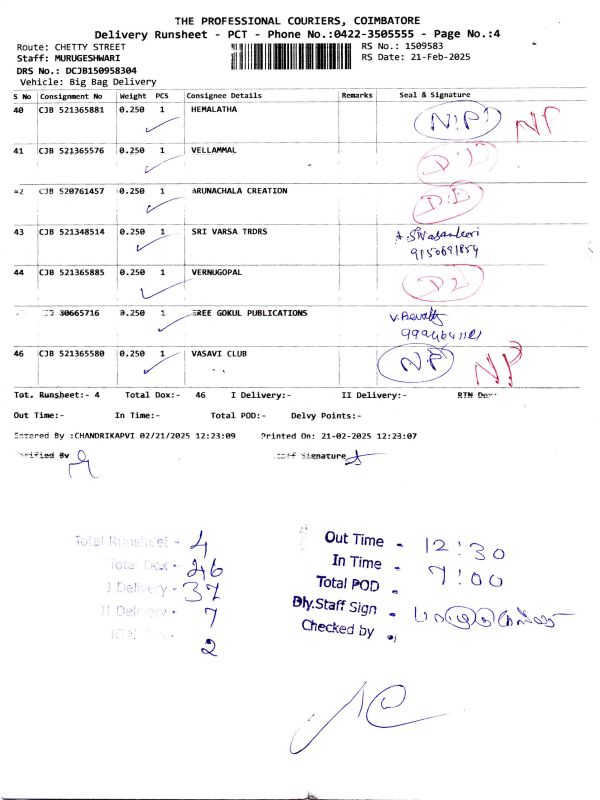 THE PROFESSIONAL COURIERS, COIMBATORE
Delivery Runsheet - PCT - Phone No.:0422-3505555 - Page No.:4
Route: CHETTY STREET RS No.: 1509583
Staff: MURUGESHWARI RS Date: 21-Feb-2025
DRS No.: DCJB150958304
Vehicle: Big Bag Delivery
S No Consignment No Weight PCS Consignee Details Remarks Seal & Signature
40 CJB 521365881 0.250 1 HEMALATHA NP NP
41 CJB 521365576 0.250 1 VELLAMMAL
42 CJB 520761457 0.250 1 ARUNACHALA CREATION D.L
43 CJB 521348514 0.250 1 SRI VARSA TRDRS
9150691854
44 CJB 521365885 0.250 1 VERNUGOPAL DL
30665716 0.250 1 SREE GOKUL PUBLICATIONS V.Revathy
46 CJB 521365580 0.250 1 VASAVI CLUB NP NP
Tot. Runsheet:- 4 Total Dox:- 46 I Delivery:- II Delivery:- RTN Dox:
Out Time:- In Time:- Total POD:- Delvy Points:-
Entered By :CHANDRIKAPVI 02/21/2025 12:23:09 Printed On: 21-02-2025 12:23:07
Verified By Staff Signature
Total Runsheet - 4
Total Dox - 46
I Delivery - 37
II Delivery - 7
RTN Dox - 2
Out Time - 12:30
In Time - 7:00
Total POD -
Dly.Staff Sign -
Checked by -